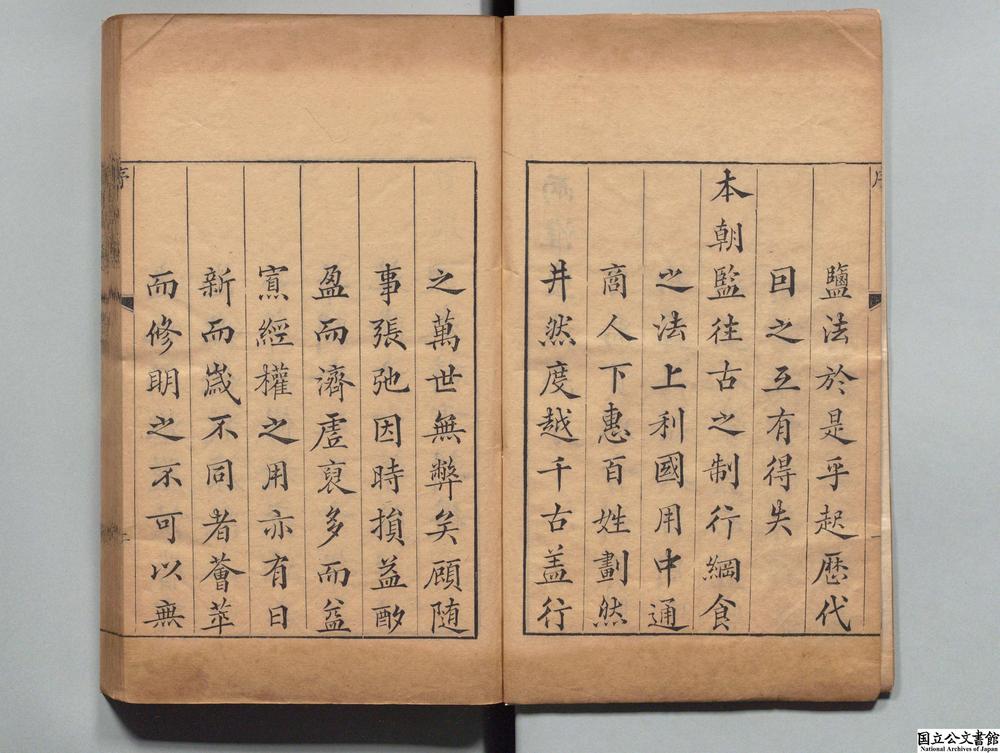 鹽法於是乎起歷代
因之互有得失
本朝監往古之制行綱食
之法上利國用中通
商人下惠百姓劃然
井然度越千古盖行
之萬世無弊矣顧隨
事張弛因時損益酌
盈而濟虛裒多而益
寡經權之用亦有日
新而歲不同者薈萃
而修明之不可以無
序
国立公文書館
National Archives of Japan